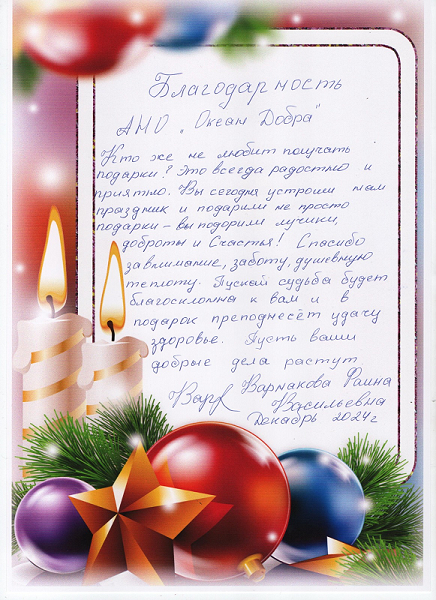 Благодарность
АНО „Океан Добра"
Кто же не любит получать
подарки? Это всегда радостно и
приятно. Вы сегодня устроили нам
праздник и подарили не просто
подарки – вы подорили лучики,
доброты и Счастья! Спасибо
за внимание, заботу, душевную
теплоту. Пускай судьба будет
благосклонна к вам и в
подарок преподнесёт удачу
здоровье. Пусть ваши
добрые дела растут
Варнакова Фаина
Васильевна
Декабрь 2024г